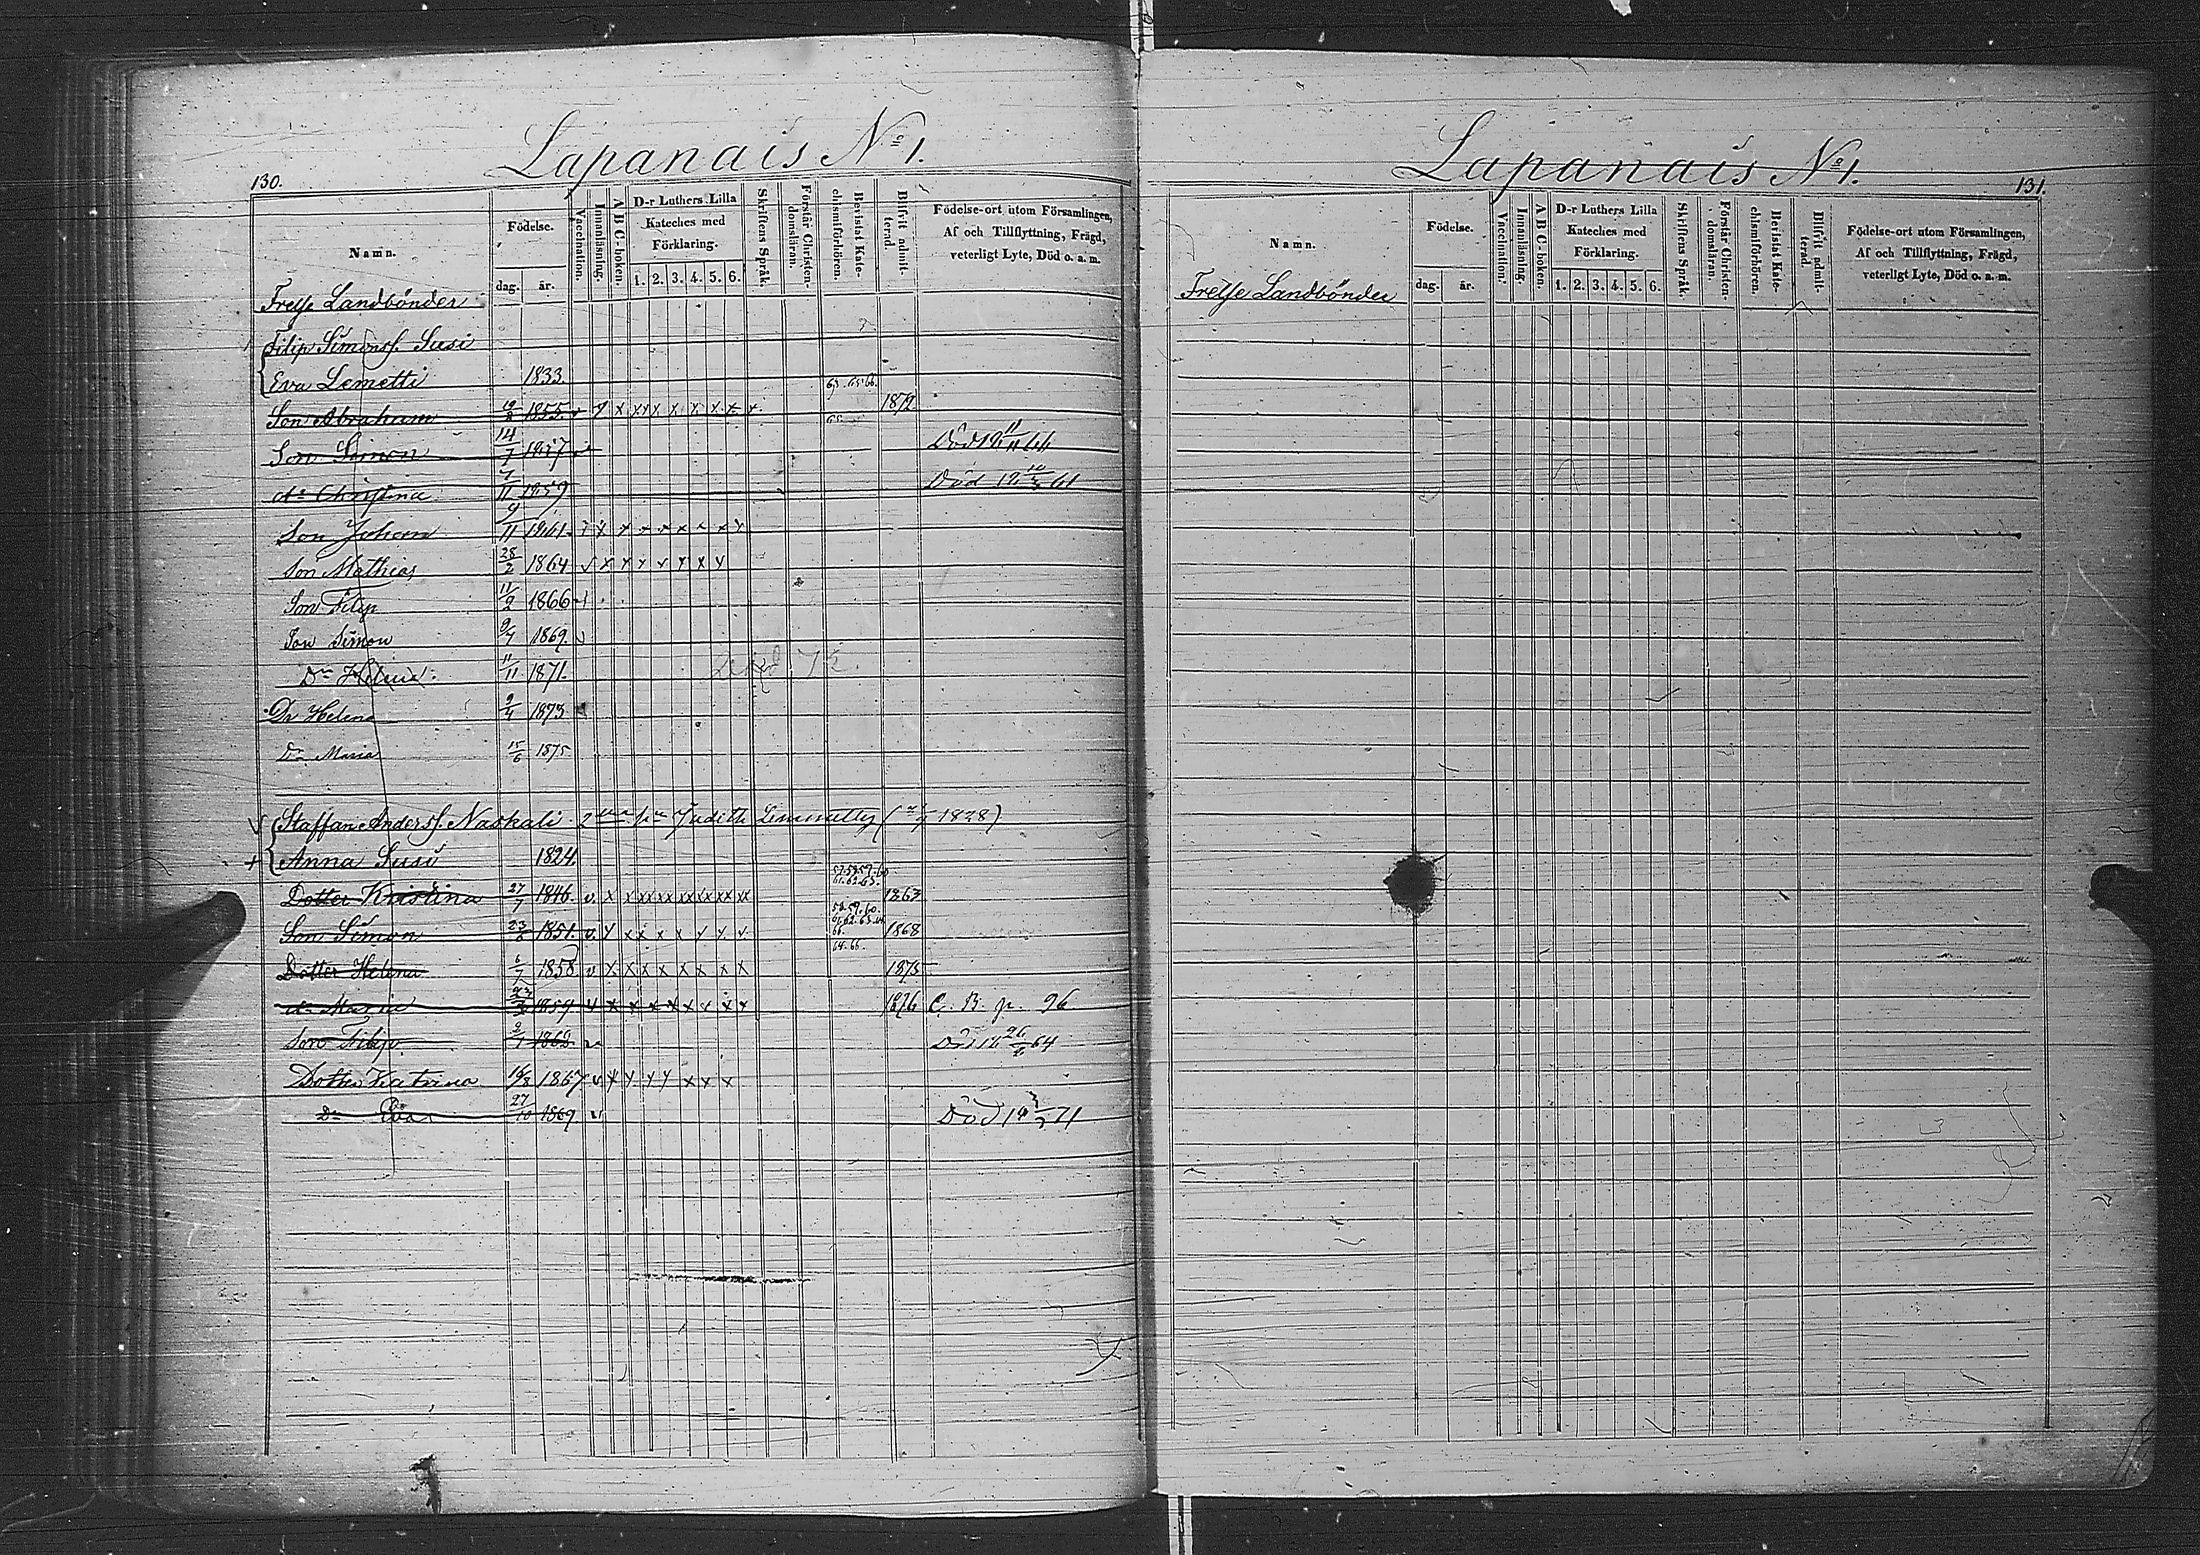 Lapanais No 1.
130.
Namn.
Födelse.
dag. år.
Vaccination.
Innanläsning.
A B C-boken.
D-r Luthers Lilla
Kateches med
Förklaring.
1. 2. 3. 4. 5. 6.
Skriftens Språk.
Förstår Christen-
domsläran.
Bevistat Kate-
chismiförhören.
Blifvit admit-
terad.
Födelse-ort utom Församlingen,
Af och Tillflyttning, Frägd,
veterligt Lyte, Död o. a. m.
Frelse Landbönder
Filip Simonss. Susi
Eva Lemetti 1833. 65. 66.
Son Abraham 1855. v y x x x x x x x x 1872
Son Simon 14/7 1857 Död
do Christina 7/11 1859 Död 61
Son Johan 9/11 1861
Son Mathias 28/2 1864 v x x x v x x x v
Son Filip 11/2 1866
Son Simon 9/7 1869. v
Dr Helena 11/11 1871.
Dr Helena 9/4 1873
Dr Maria 15/6 1875
Staffan Anderss. Naskali Judith (1828)
Anna Susi 1824.
57. 58. 59. 60
61. 62. 63.
Dotter Kristina 27/7 1846. v. x x x x x x x x x x x 1863
58. 59. 60.
61. 62. 63. 64
66.
Son Simon 23/6 1851. v. y x x x x y y y 1868
64. 66.
Dotter Helena 6/7 1858. v x x x x x x x x 1875
do Maria 1859 v x x x x x v x x 1876 C. B. p. 96
Son Filip 2/1 1862 Död 18 26/ 64
Dotter Katrina 16/8 1867 v x y y y x x x
Dr Eva 27/10 1869. Död 18 71
Lapanais No 1.
131.
Namn.
Födelse.
dag. år.
Vaccination.
Innanläsning.
A B C-boken.
D-r Luthers Lilla
Kateches med
Förklaring.
1. 2. 3. 4. 5. 6.
Skriftens Språk.
Förstår Christen-
domsläran.
Bevistat Kate-
chismiförhören.
Blifvit admit-
terad.
Födelse-ort utom Församlingen,
Af och Tillflyttning, Frägd,
veterligt Lyte, Död o. a. m.
Frelse Landbönder